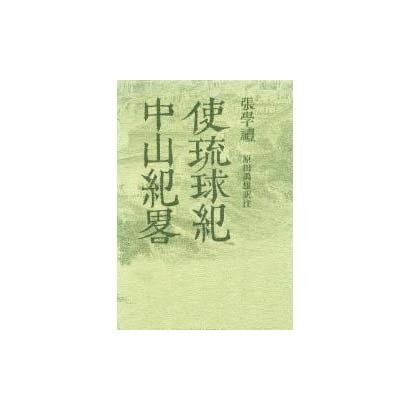 張學禮
原田禹雄訳注
使琉球紀
中山紀畧